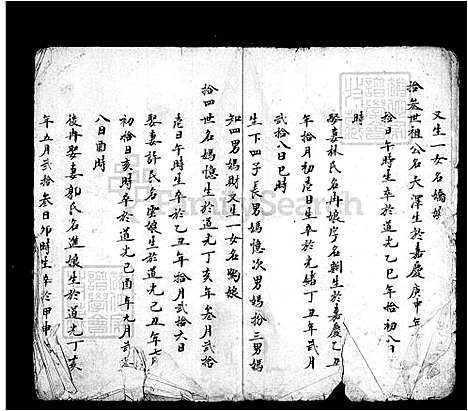 又生一女名嬌娘
拾叁世祖公名天澤生於嘉慶庚申年
拾日午時生卒於道光乙巳年拾初八日
時
娶妻林氏名冉娘字名朝生於嘉慶乙丑
年拾月初一日生卒於光緒丁丑年貳月
貳拾八日巳時
生下四子長男媽憶次男媽扮三男媽
知四男媽財又生一女名娘
拾四世名媽憶生於道光丁亥年叁月貳拾
一日午時生卒於乙丑年拾月貳拾六日
娶妻許氏名生於道光己丑年七月
初拾日亥時卒於道光己酉年九月貳
八日酉時
後冉娶妻郭氏名進娘生於道光丁亥
年五月貳拾叁日卯時生卒於甲申
FamilySearch